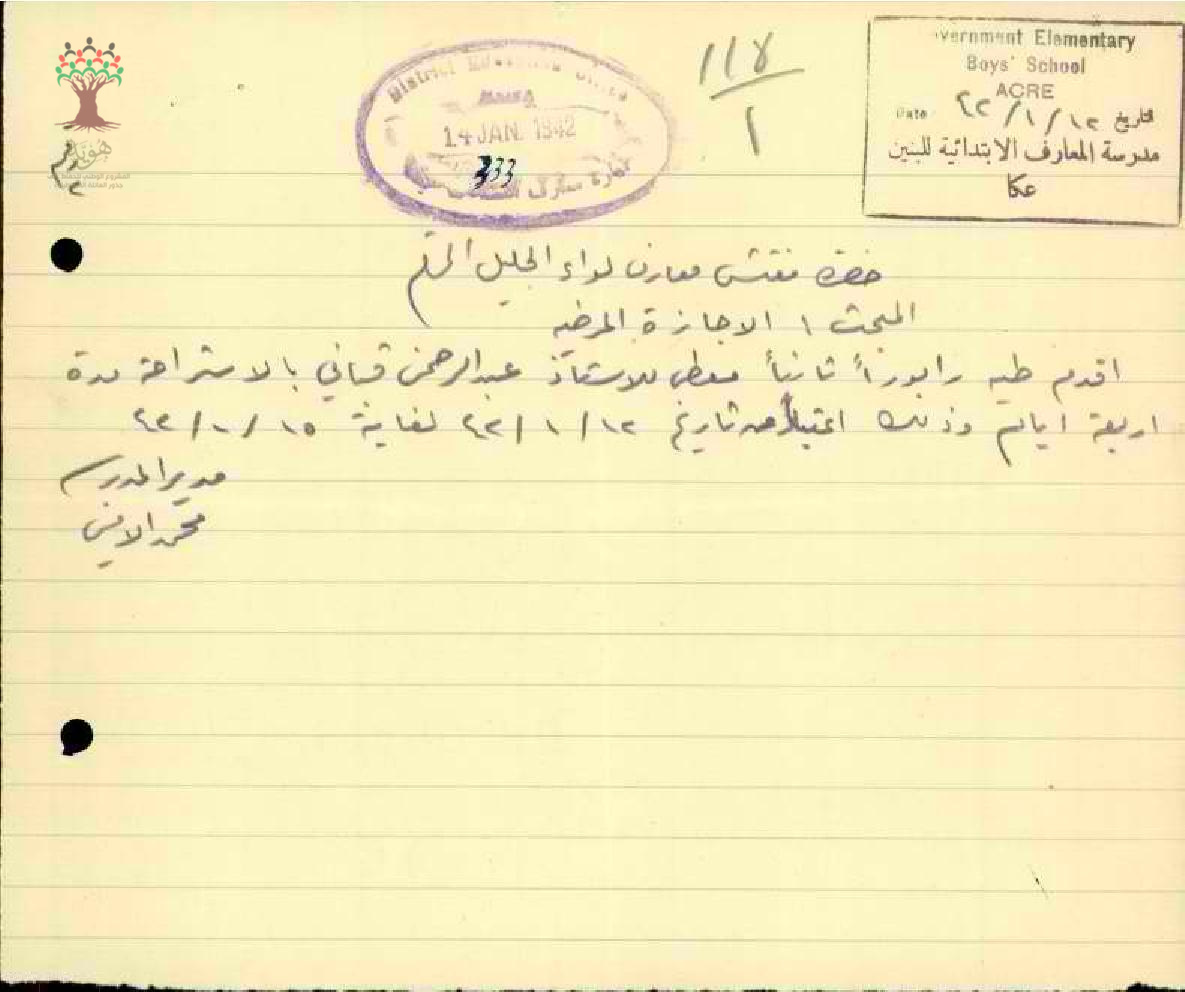 Government Elementary
Boys' School
ACRE
Date ٤٢/١/١٢ تاريخ
مدرسة المعارف الابتدائية للبنين
عكا
District Education Office
HAIFA
14 JAN. 1942
333
١١٨
١
هوية
حضرة مفتش معارف لواء الجليل المحترم
المبحث ١ الاجازة المرضيه
اقدم طيه رابوراً ثانياً معطى للاستاذ عبدالرحمن قباني بالاستراحة مدة
اربعة ايام وذلك اعتباراً من تاريخ ٤٢/١/١٢ لغاية ٤٢/١/١٥
مدير المدرسه
محمد